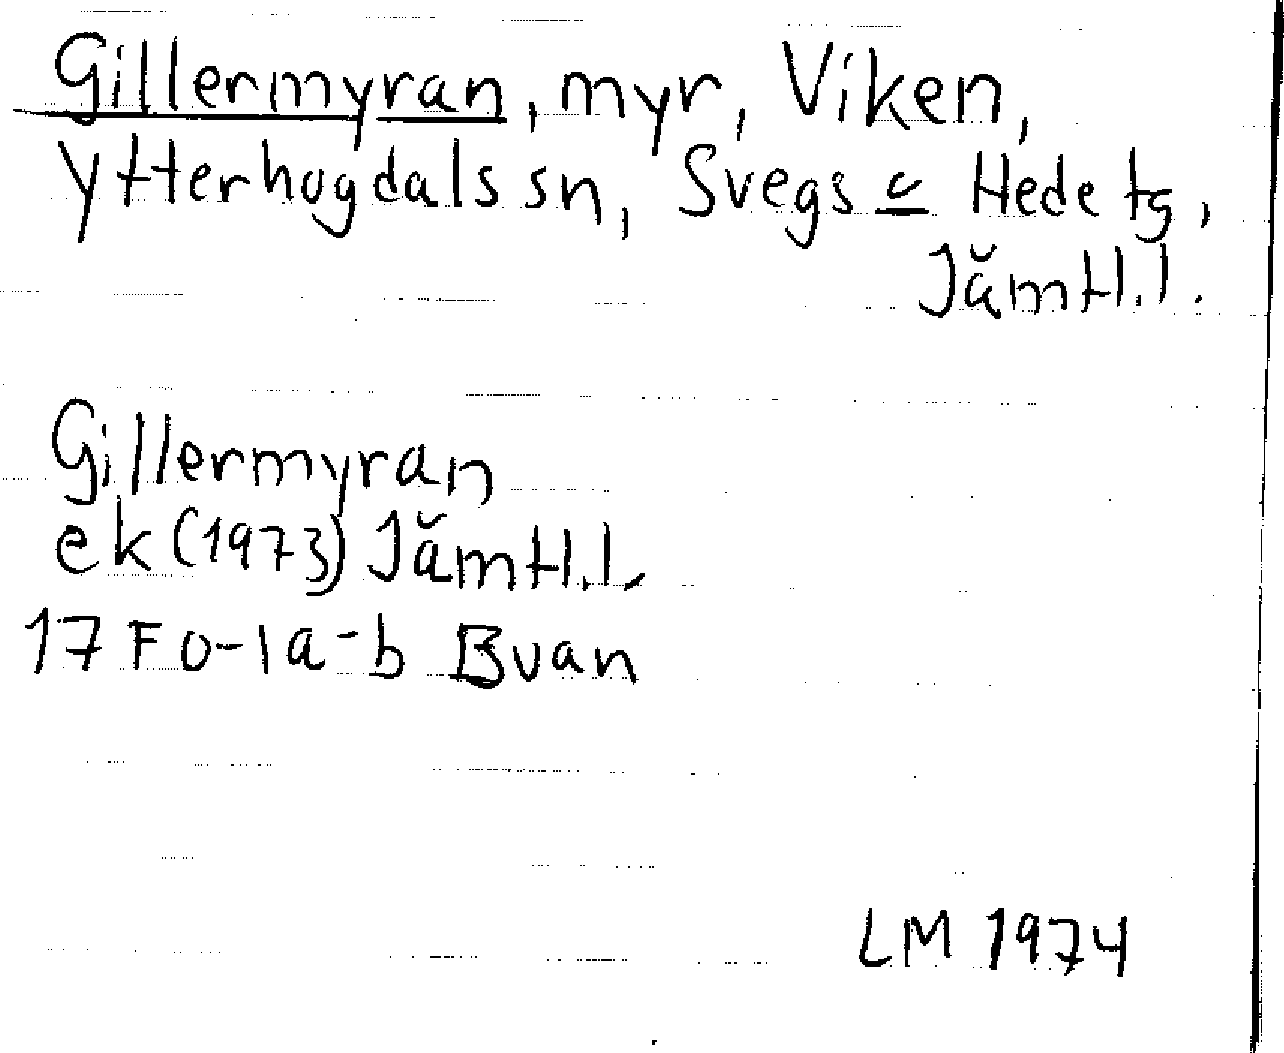 Gillermyran, myr, Viken,
Ytterhogdals sn, Svegs o Hede tg,
Jämtl.l.
Gillermyran
ek (1973) Jämtl.l.
17 F 0-1a-b Buan
LM 1974